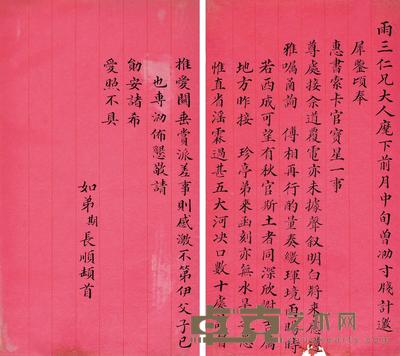 雨三仁兄大人麾下前月中旬曾泐寸牋計邀
犀鑒頃奉
惠書索卡官寶星一事
尊處接余道覆電亦未據聲叙明白將来應
雅囑商詢 傅相再行酌量奏繳琿境雨暘時
若西成可望有秋官斯土者同深欣
地方昨接 珍亭弟来函刻亦無水旱
惟直省滛霖過甚五大河决口數十處
推愛關垂賞派差事則感激不第伊父子已
也專泐佈懇敬請
勛安諸希
愛照不具
如弟期長順頓首